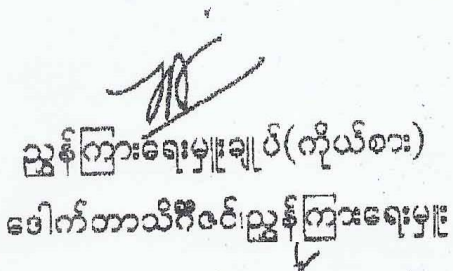 ညွှန်ကြားရေးမှူးချုပ်(ကိုယ်စား)
ဒေါက်တာသိင်္ဂီဇင်၊ညွှန်ကြားရေးမှူး